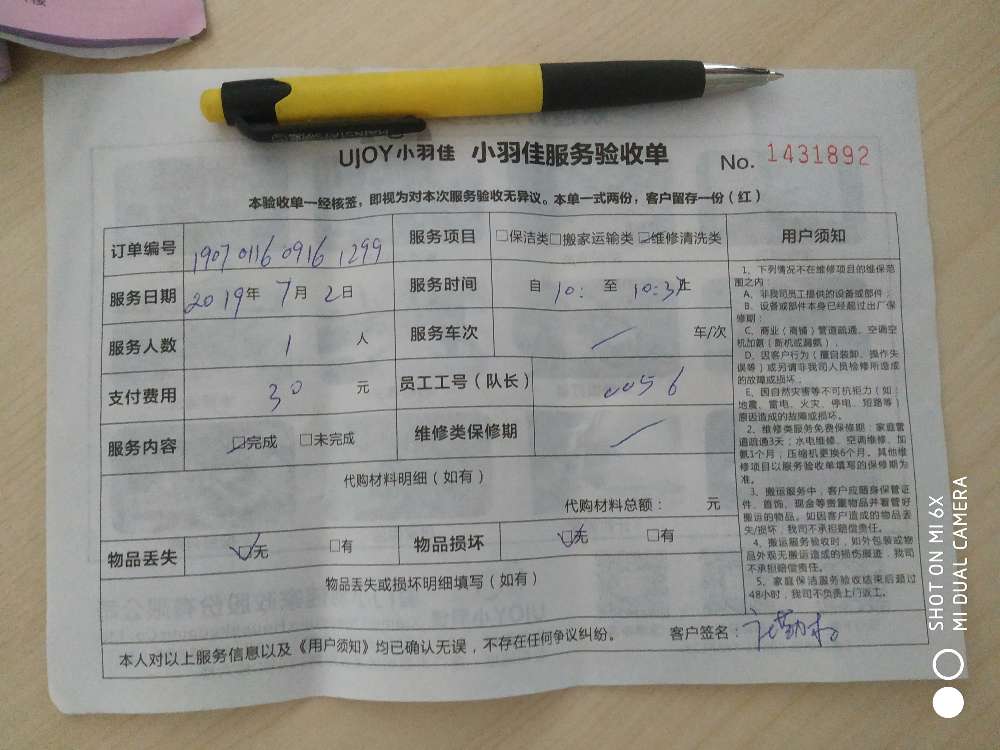 UJOY小羽佳 小羽佳服务验收单 No. 1431892
本验收单一经核签，即视为对本次服务验收无异议。本单一式两份，客户留存一份（红）
订单编号 1907 0116 0916 1299 服务项目 □保洁类□搬家运输类☑维修清洗类
服务日期 2019年 7月 2日 服务时间 自 10: 至 10:3 止
服务人数 1 人 服务车次 / 车/次
支付费用 30 元 员工工号（队长） 0056
服务内容 ☑完成 □未完成 维修类保修期 /
代购材料明细（如有）
代购材料总额： 元
物品丢失 ☑无 □有 物品损坏 ☑无 □有
物品丢失或损坏明细填写（如有）
用户须知
1、下列情况不在维修项目的维保范
围之内：
A、非我司员工提供的设备或部件；
B、设备或部件本身已经超过出厂保
修期；
C、商业（商铺）管道疏通、空调空
机加氨（新机或漏氨）；
D、因客户行为（擅自装卸、操作失
误等）或另请非我司人员检修所造成
的故障或损坏；
E、因自然灾害等不可抗拒力（如：
地震、雷电、火灾、停电、短路等）
原因造成的故障或损坏。
2、维修类服务免费保修期：家庭管
道疏通3天；水电维修、空调维修、加
氨1个月；压缩机更换6个月。其他维
修项目以服务验收单填写的保修期为
准。
3、搬运服务中，客户应随身保管证
件、首饰、现金等贵重物品并看管好
搬运的物品。如因客户造成的物品丢
失/损坏，我司不承担赔偿责任。
4、搬运服务验收时，如外包装或物
品外观无搬运造成的损伤痕迹，我司
不承担赔偿责任。
5、家庭保洁服务验收结束后超过
48小时，我司不负责上门返工。
本人对以上服务信息以及《用户须知》均已确认无误，不存在任何争议纠纷。 客户签名：
SHOT ON MI 6X
MI DUAL CAMERA